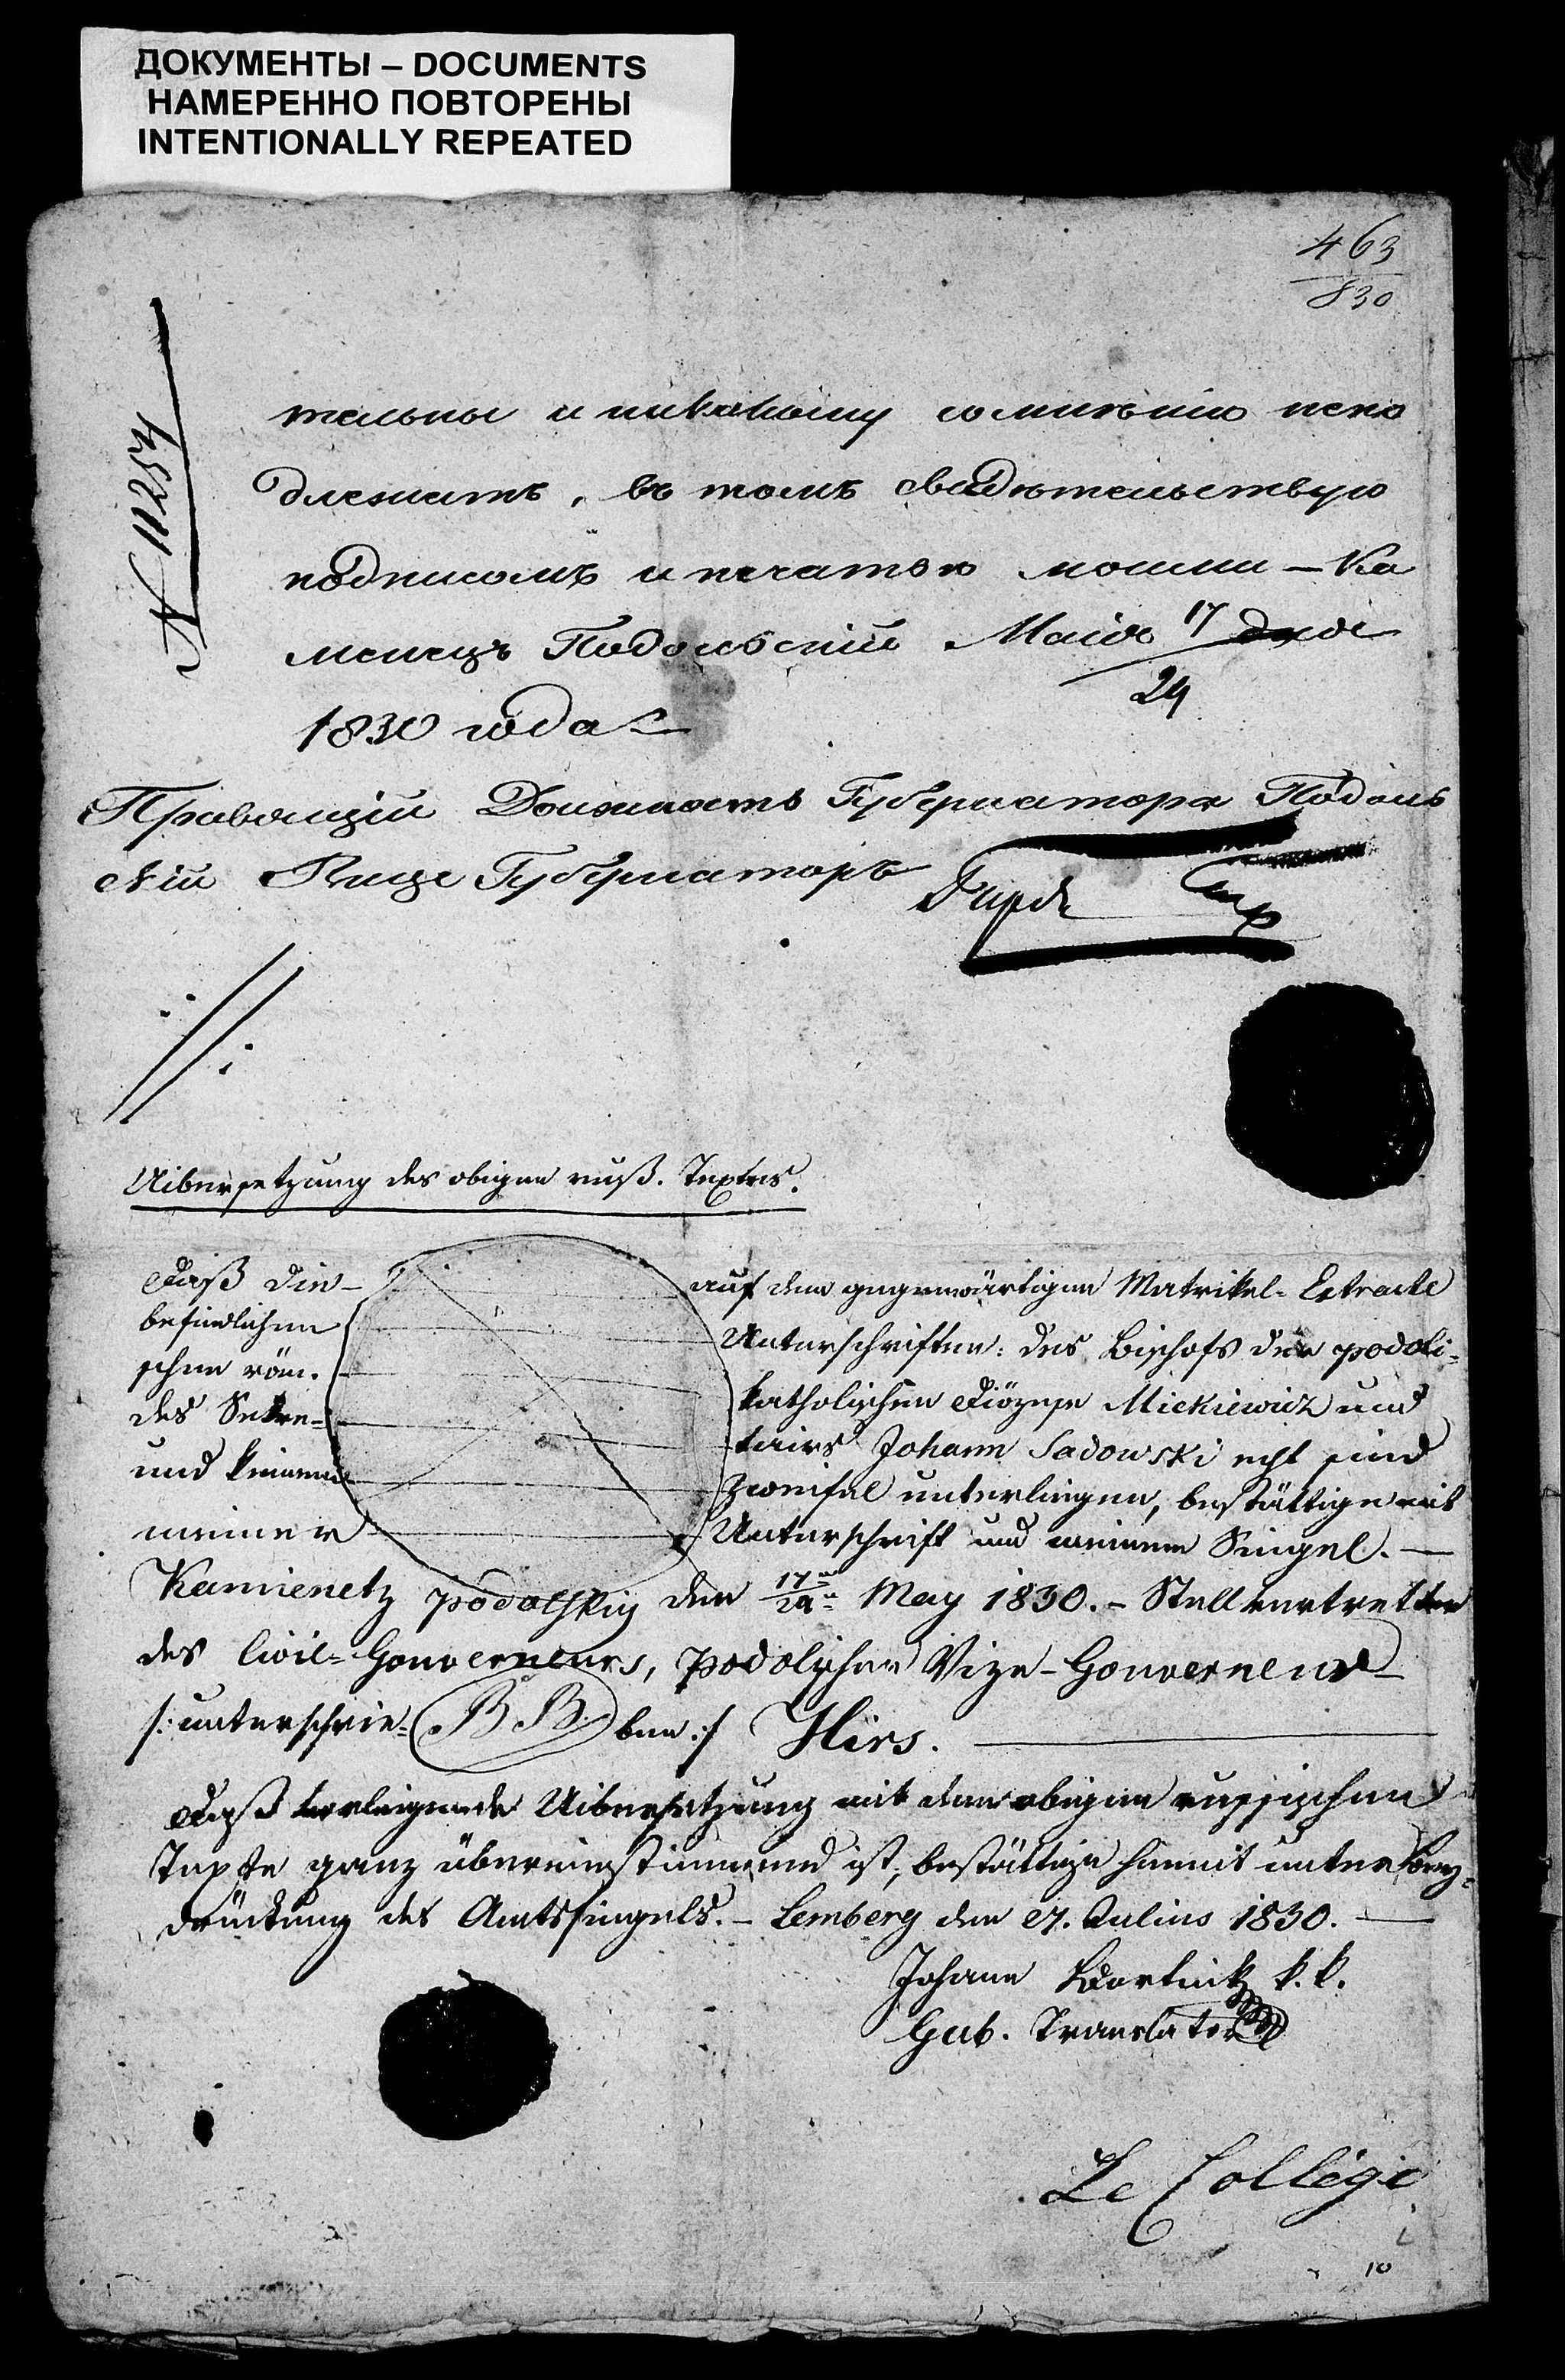 ДОКУМЕНТЫ – DOCUMENTS
НАМЕРЕННО ПОВТОРЕНЫ
INTENTIONALLY REPEATED
463
830
N 11254
тельны и никакому сомнѣнію непо
длежитъ, въ томъ свидѣтельствую
подписомъ и печатью моими – Ка
менецъ Подольскій Маія 17 дня
29
1830 года
Правящій Должность Губернатора Подоль
скій Вице Губернаторъ
Uibersetzung des obigen russ. Textes.
Daß die auf dem gegenwärtigen Matrikel-Extracte
befindlichen Unterschriften: des Bischofs der podoli-
schen röm. katholischen Diözese Mickiewicz und
des Sekre- tairs Johann Sadowski echt sind
und keinem Zweifel unterliegen, bestättige mit
meiner Unterschrift und meinem Siegel. –
Kamienetz podolskij den 17/29 May 1830. – Stellvertretter
des Civil-Gouverneurs, podolischer Vize-Gouverneur
/: unterschrie- BB ben :/ Hirs.
Daß vorliegende Uibersetzung mit dem obigen russischen
Texte ganz übereinstimmend ist, bestättige hiemit unter Bey-
drückung des Amtssiegels. – Lemberg den 27. Julius 1830. –
Johann k. k.
Gub. Translator
Le Collège
10